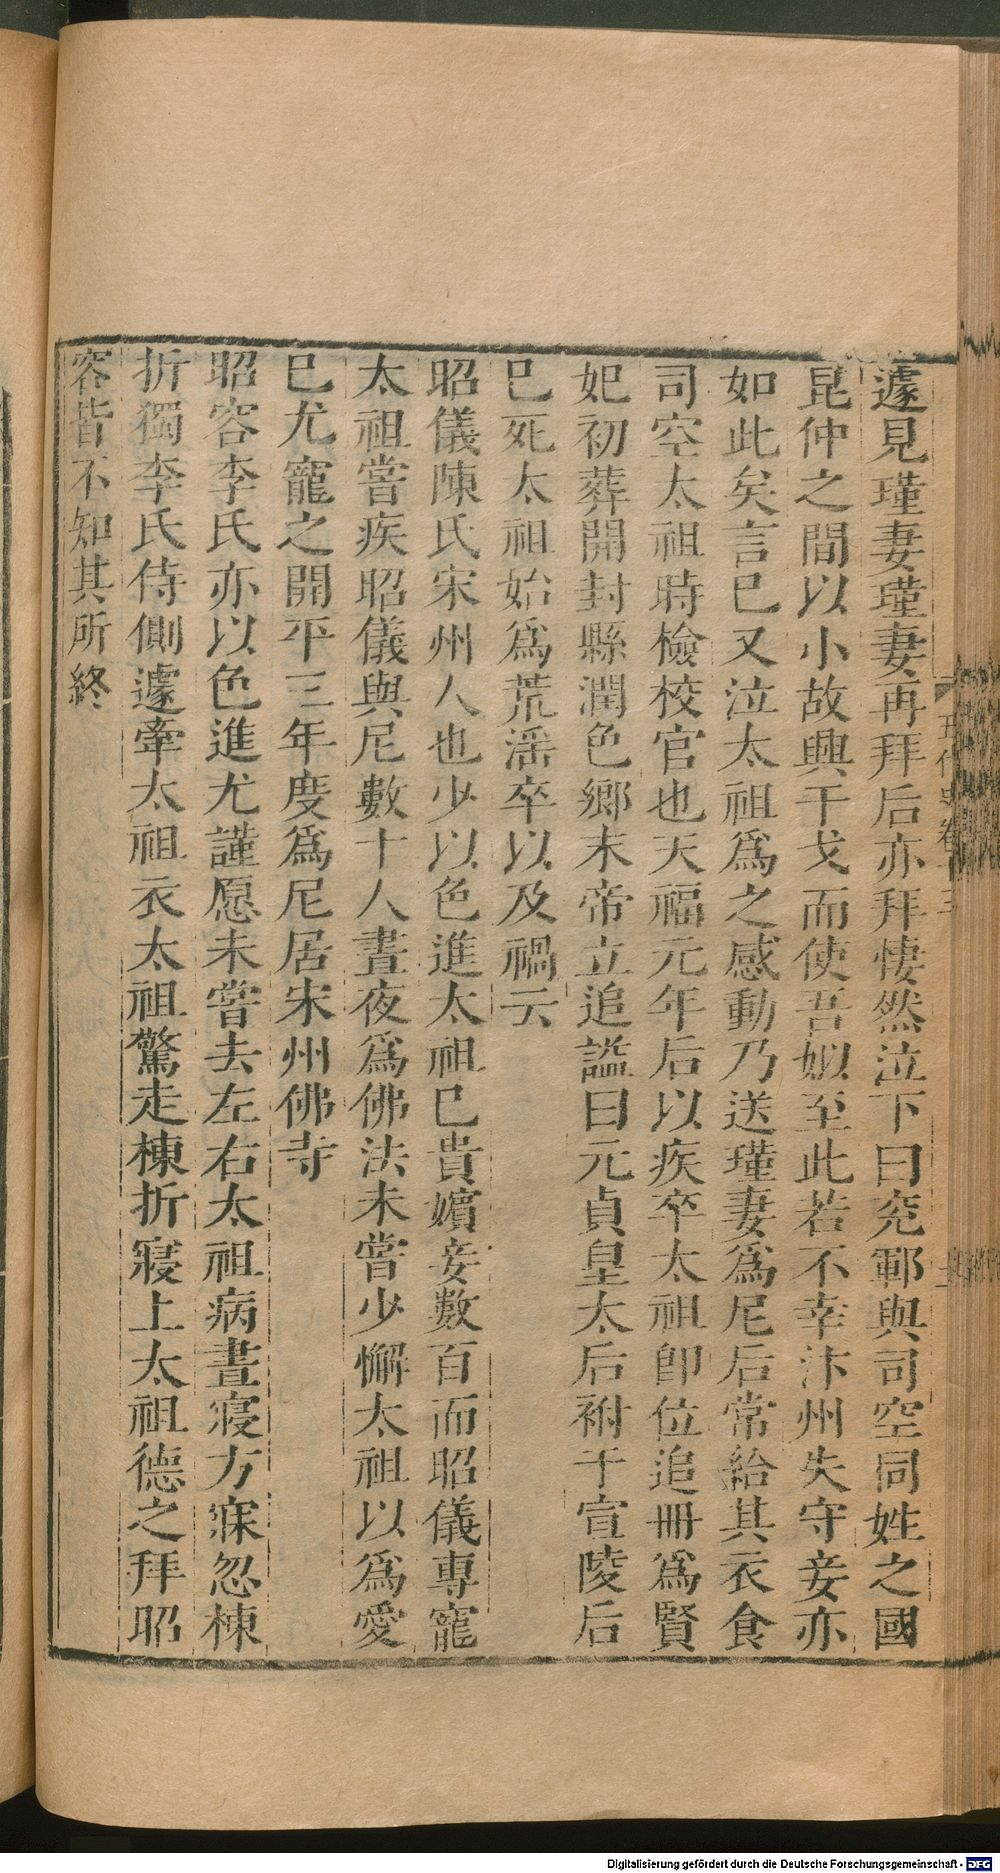 遽見瑾妻瑾妻再拜后亦拜悽然泣下曰兖鄆與司空同姓之國
昆仲之間以小故興干戈而使吾姒至此若不幸汴州失守妾亦
如此矣言巳又泣太祖爲之感動乃送瑾妻爲尼后常給其衣食
司空太祖時檢校官也天福元年后以疾卒太祖卽位追冊爲賢
妃初葬開封縣潤色鄉末帝立追謚曰元貞皇太后祔于宣陵后
巳死太祖始爲荒滛卒以及禍云
昭儀陳氏宋州人也少以色進太祖巳貴嬪妾數百而昭儀專寵
太祖嘗疾昭儀與尼數十人晝夜爲佛法未嘗少懈太祖以爲愛
巳尤寵之開平三年度爲尼居宋州佛寺
昭容李氏亦以色進尤謹愿未嘗去左右太祖病晝寢方寐忽棟
折獨李氏侍側遽牽太祖衣太祖驚走棟折寢上太祖德之拜昭
容皆不知其所終
五代史卷十三
Digitalisierung gefördert durch die Deutsche Forschungsgemeinschaft - DFG